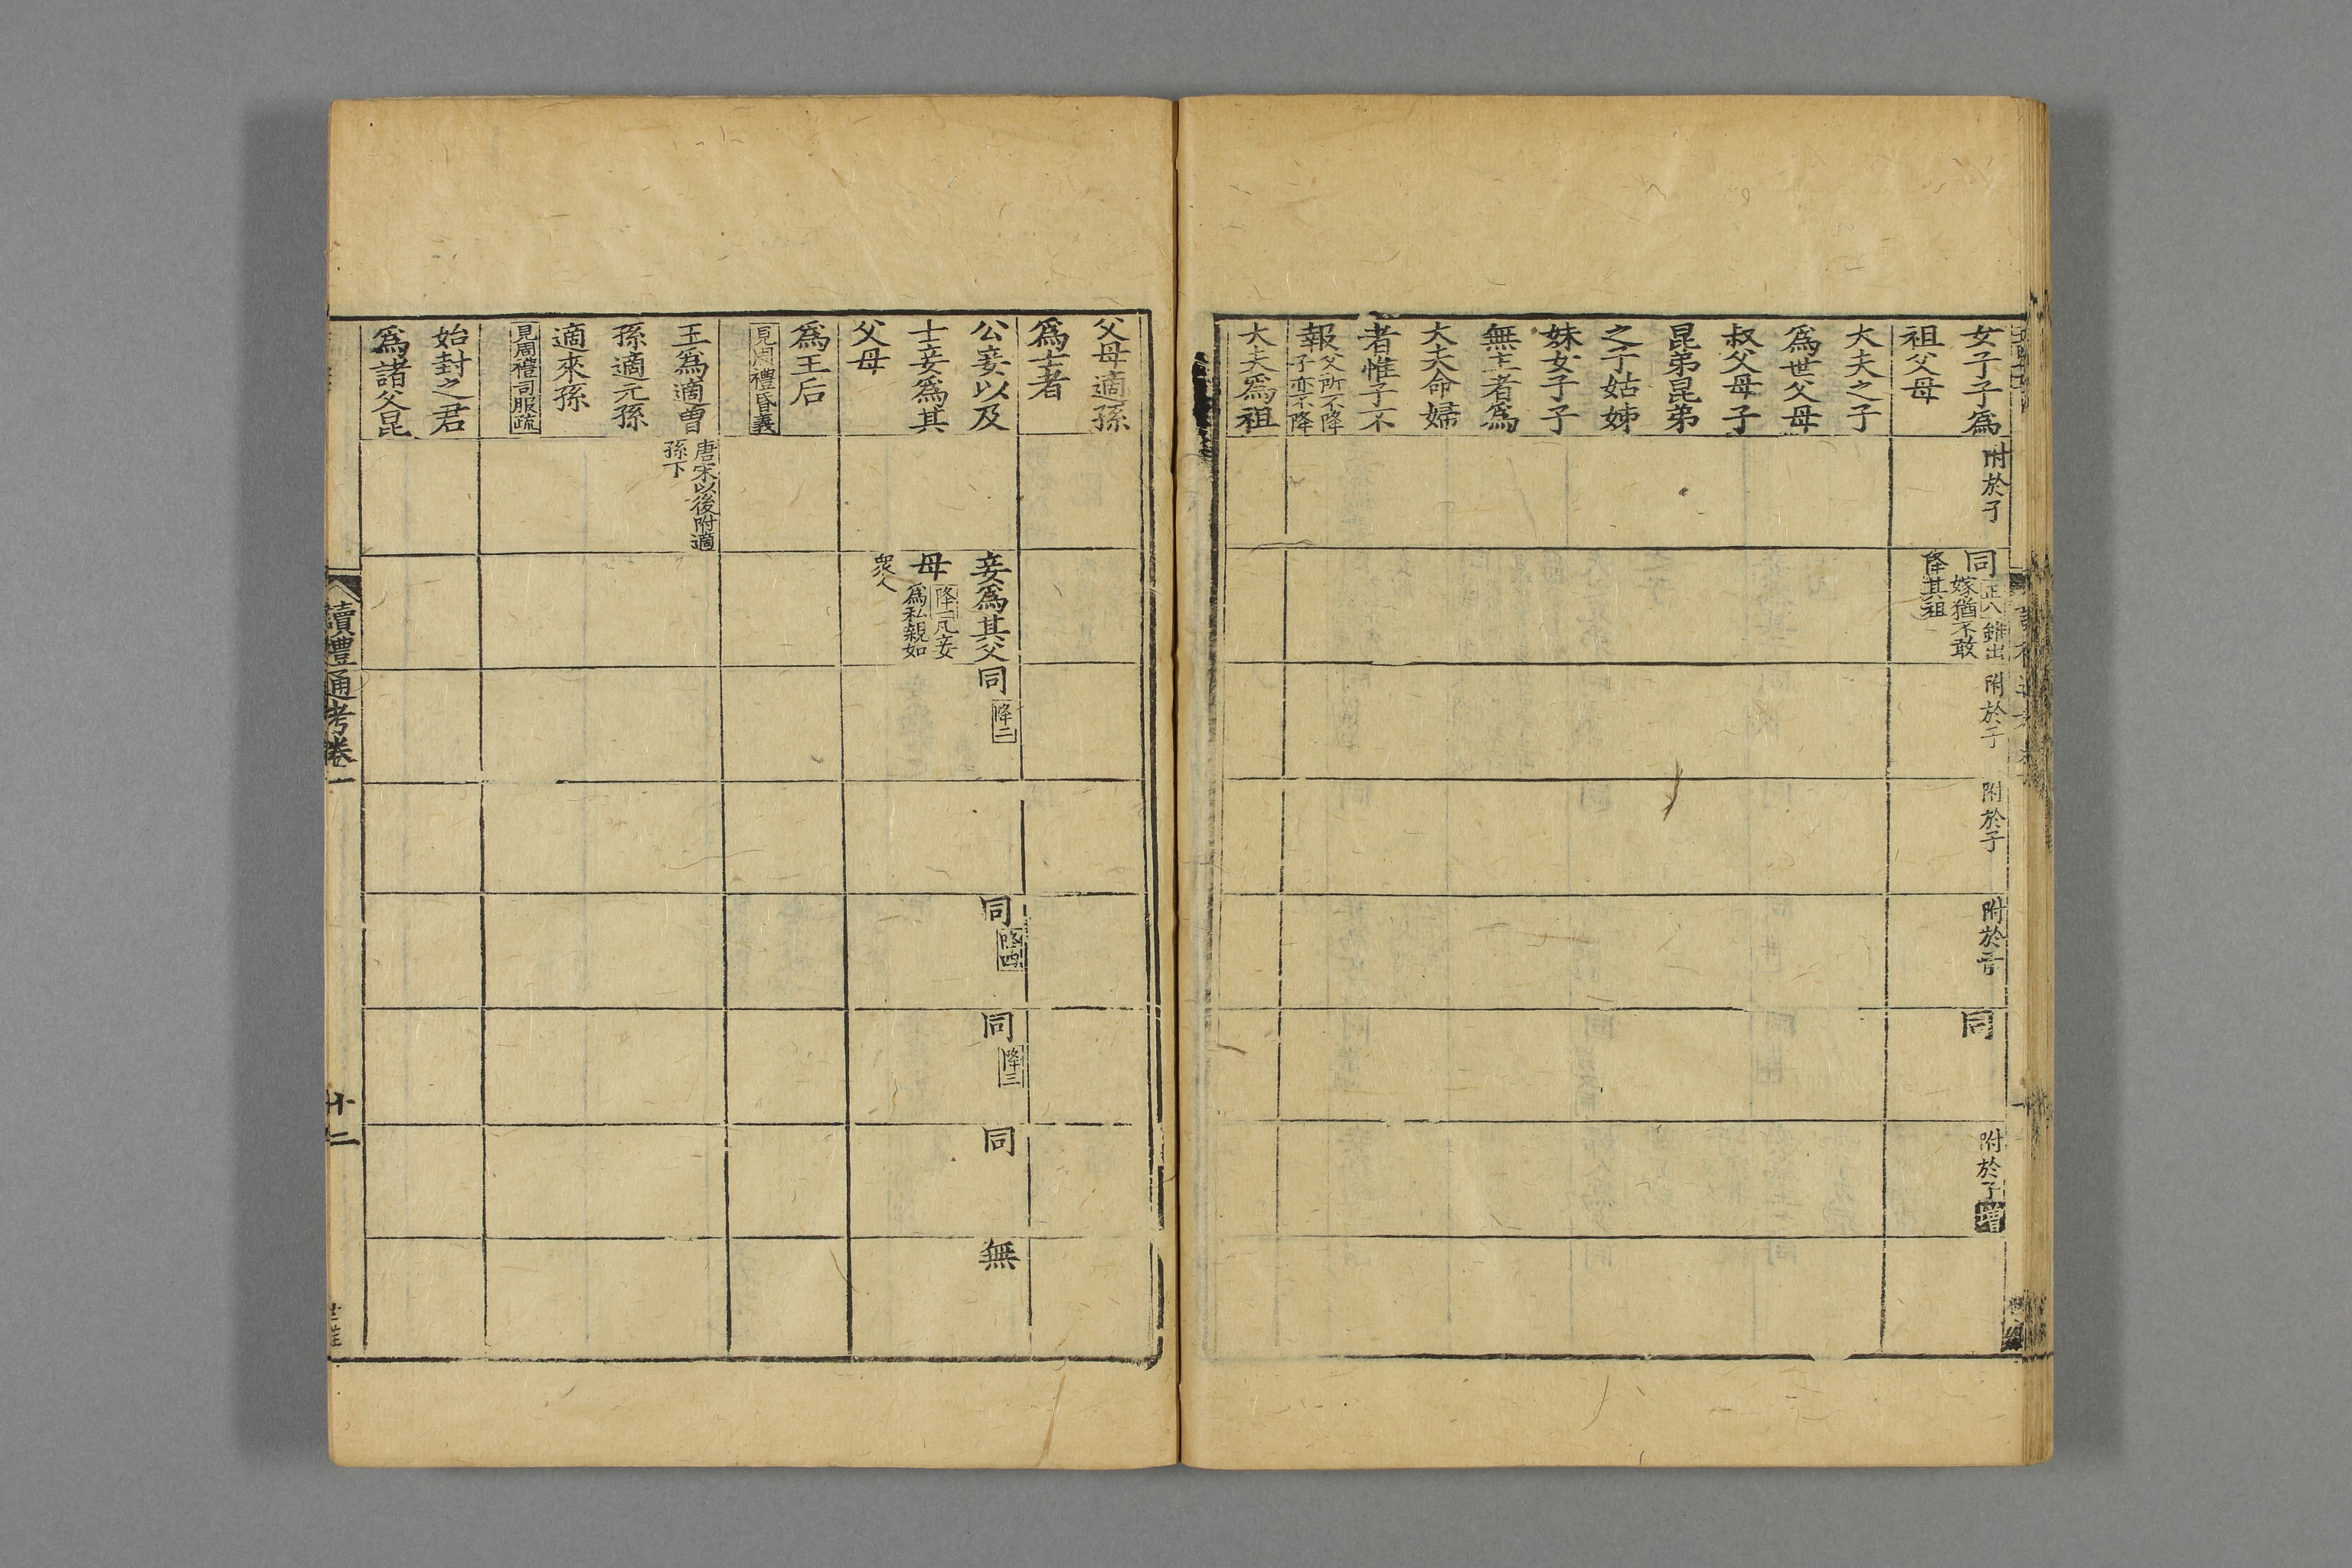 女子子為
祖父母
附於子
同
正八雖出
嫁猶不敢
降其祖
附於子
附於子
附於子
同
附於子增
大夫之子
為世父母
叔父母子
昆弟昆弟
之子姑姊
妹女子子
無主者為
大夫命婦
者惟子不
報父所不降
子亦不降
大夫為祖
父母適孫
為士者
公妾以及
士妾為其
父母
妾為其父
母降一凡妾
為私親如
衆人
同降二
同降四
同降三
同
無
為王后
見周禮昏義
王為適曾
孫適元孫
適來孫
見周禮司服疏
唐宋以後附適
孫下
始封之君
為諸父昆
讀禮通考卷一
十二